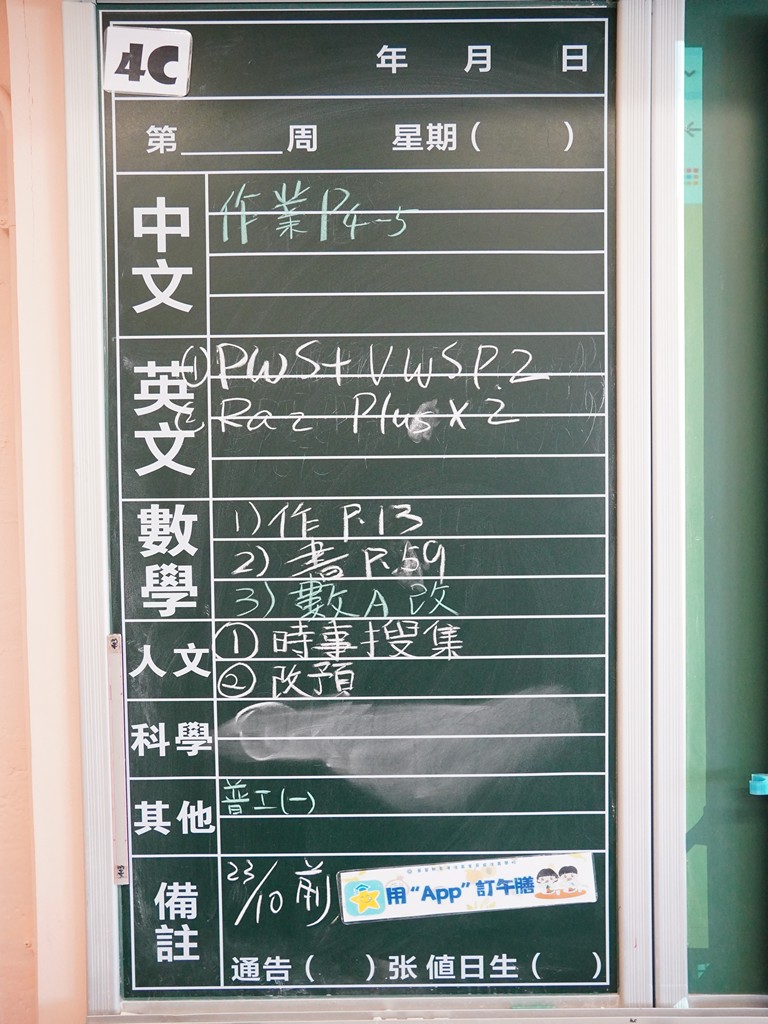 4C
年 月 日
第______周 星期( )
中文
作業P4-5
英文
① PWS+VWSP.2
② Raz Plus x 2
數學
1) 作 P.13
2) 書 P.59
3) 數A改
人文
① 時事搜集
② 改預
科學
其他
普工(一)
備註
23/10 前
用“App”訂午膳
通告( )张 值日生( )